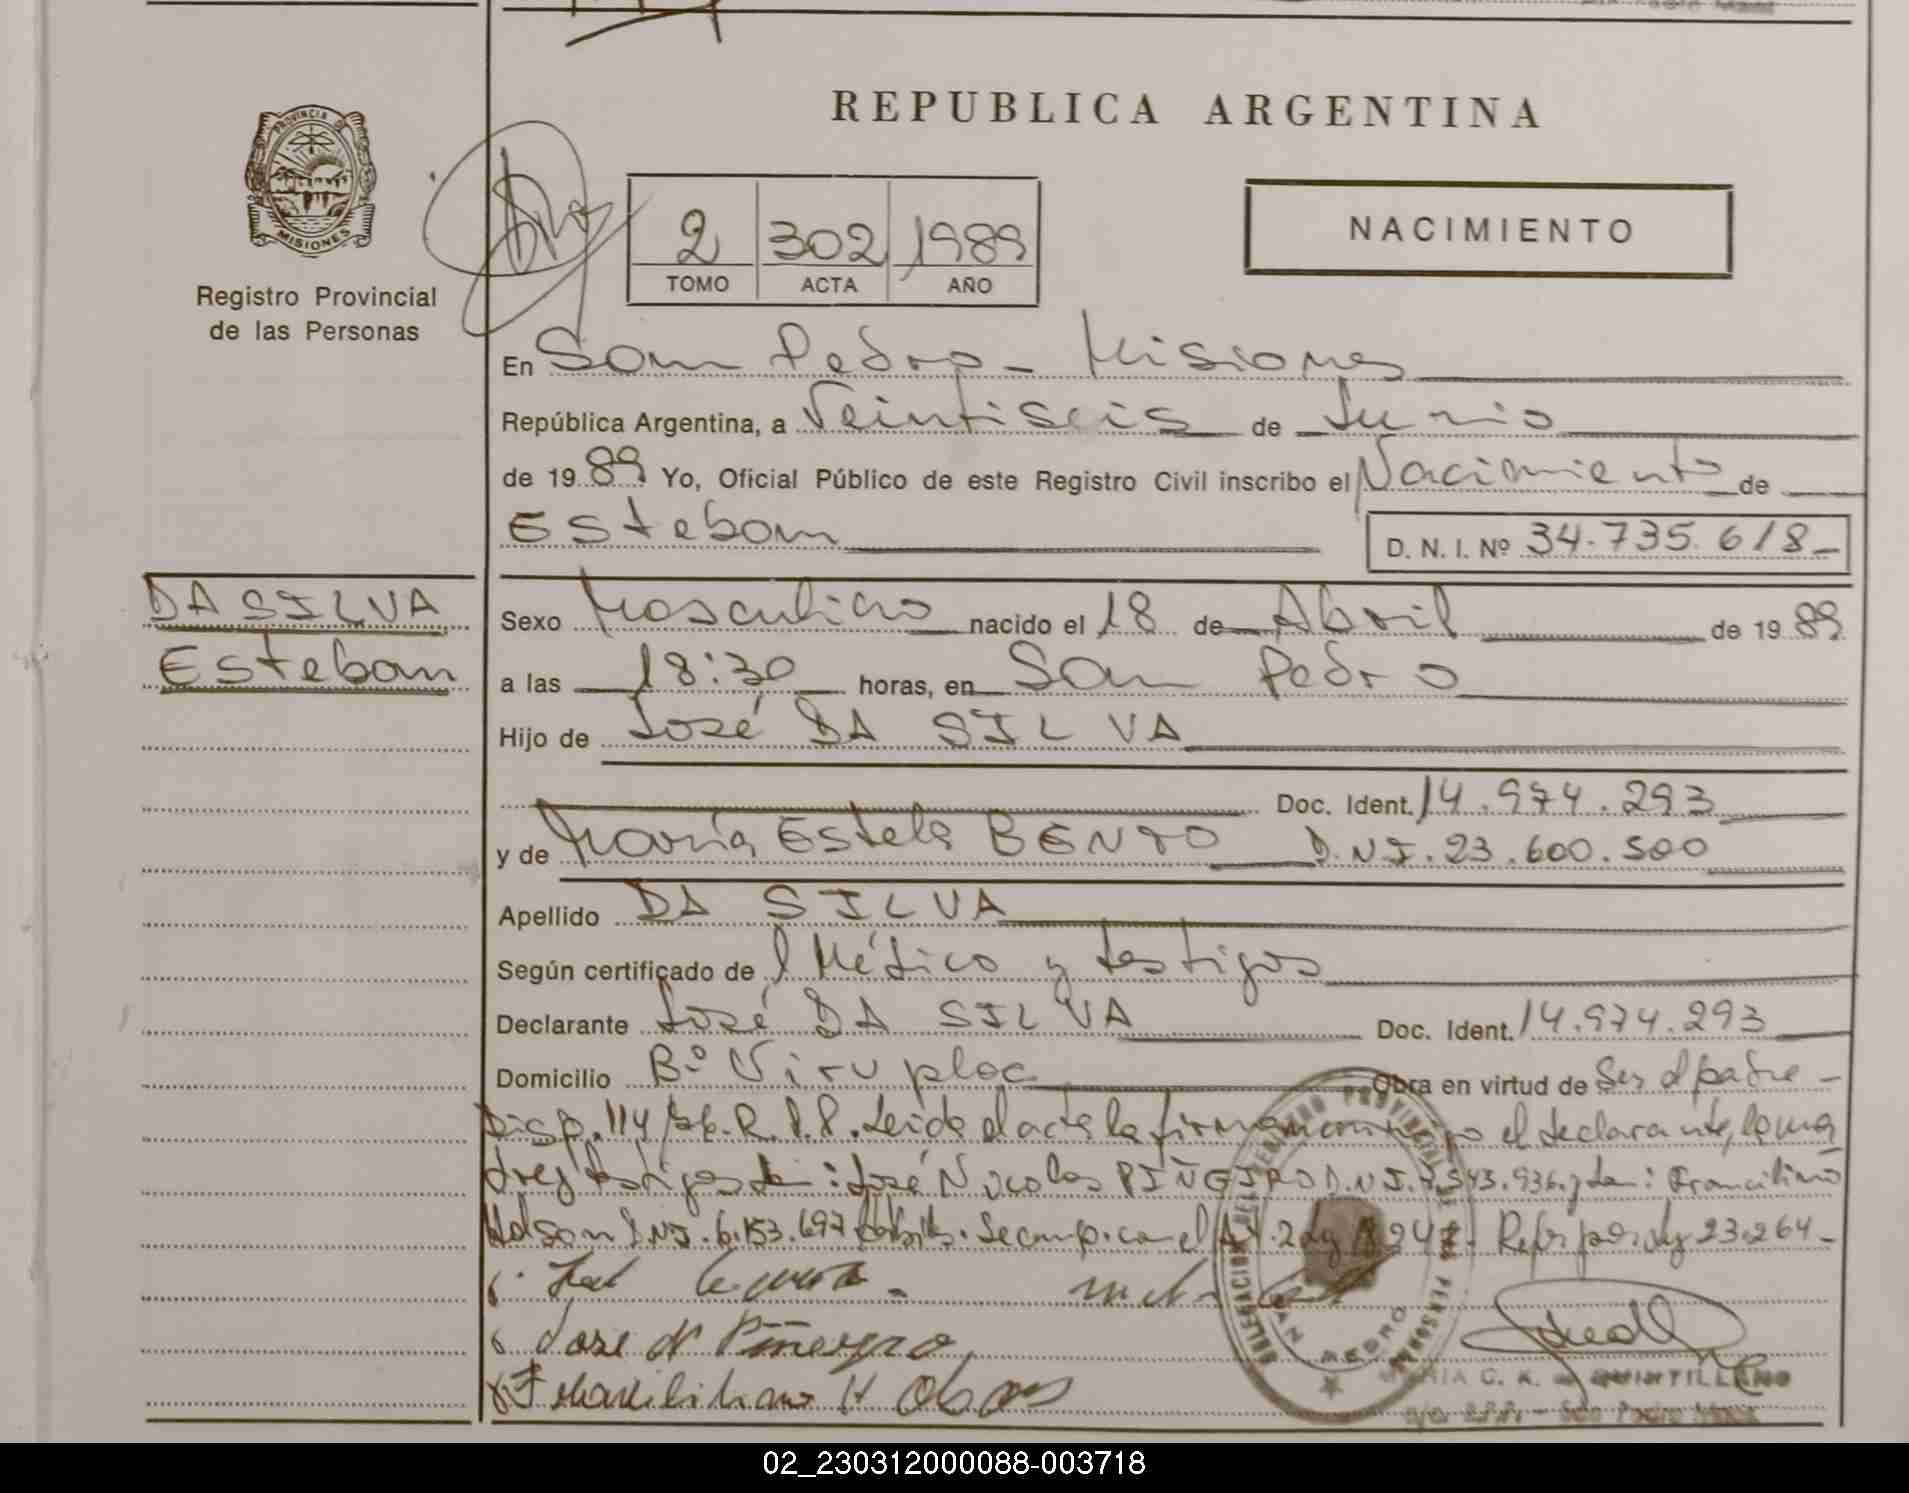 REPUBLICA ARGENTINA
PROVINCIA DE
MISIONES
Registro Provincial
de las Personas
2 302 1989
TOMO ACTA AÑO
NACIMIENTO
En San Pedro - Misiones
República Argentina, a Veintiseis de Junio
de 1989 Yo, Oficial Público de este Registro Civil inscribo el Nacimiento de
Esteban
D. N. I. Nº 34.735.618-
DA SILVA
Esteban
Sexo Masculino nacido el 18 de Abril de 1989
a las 18:30 horas, en San Pedro
Hijo de José DA SILVA
Doc. Ident. 14.974.293
y de María Estela BENTO D.N.I. 23.600.500
Apellido DA SILVA
Según certificado del Médico y testigos
Declarante José DA SILVA Doc. Ident. 14.974.293
Domicilio Bº Viru Obra en virtud de Ser el padre -
Disp. 114 R. P. P. Leida el acta la firman conmigo el declarante, la ma
dre y testigos José Nicolas PIÑEIRO D.N.I.
D.N.I. 6.153.697 Se cump. con el Ref. por ley 23.264 -
Jose N Piñeyro
DELEGACION REGISTRO PROVINCIAL PERSONAS
SAN PEDRO
MARIA C. K. QUINTILLANO
San Pedro
02_230312000088-003718